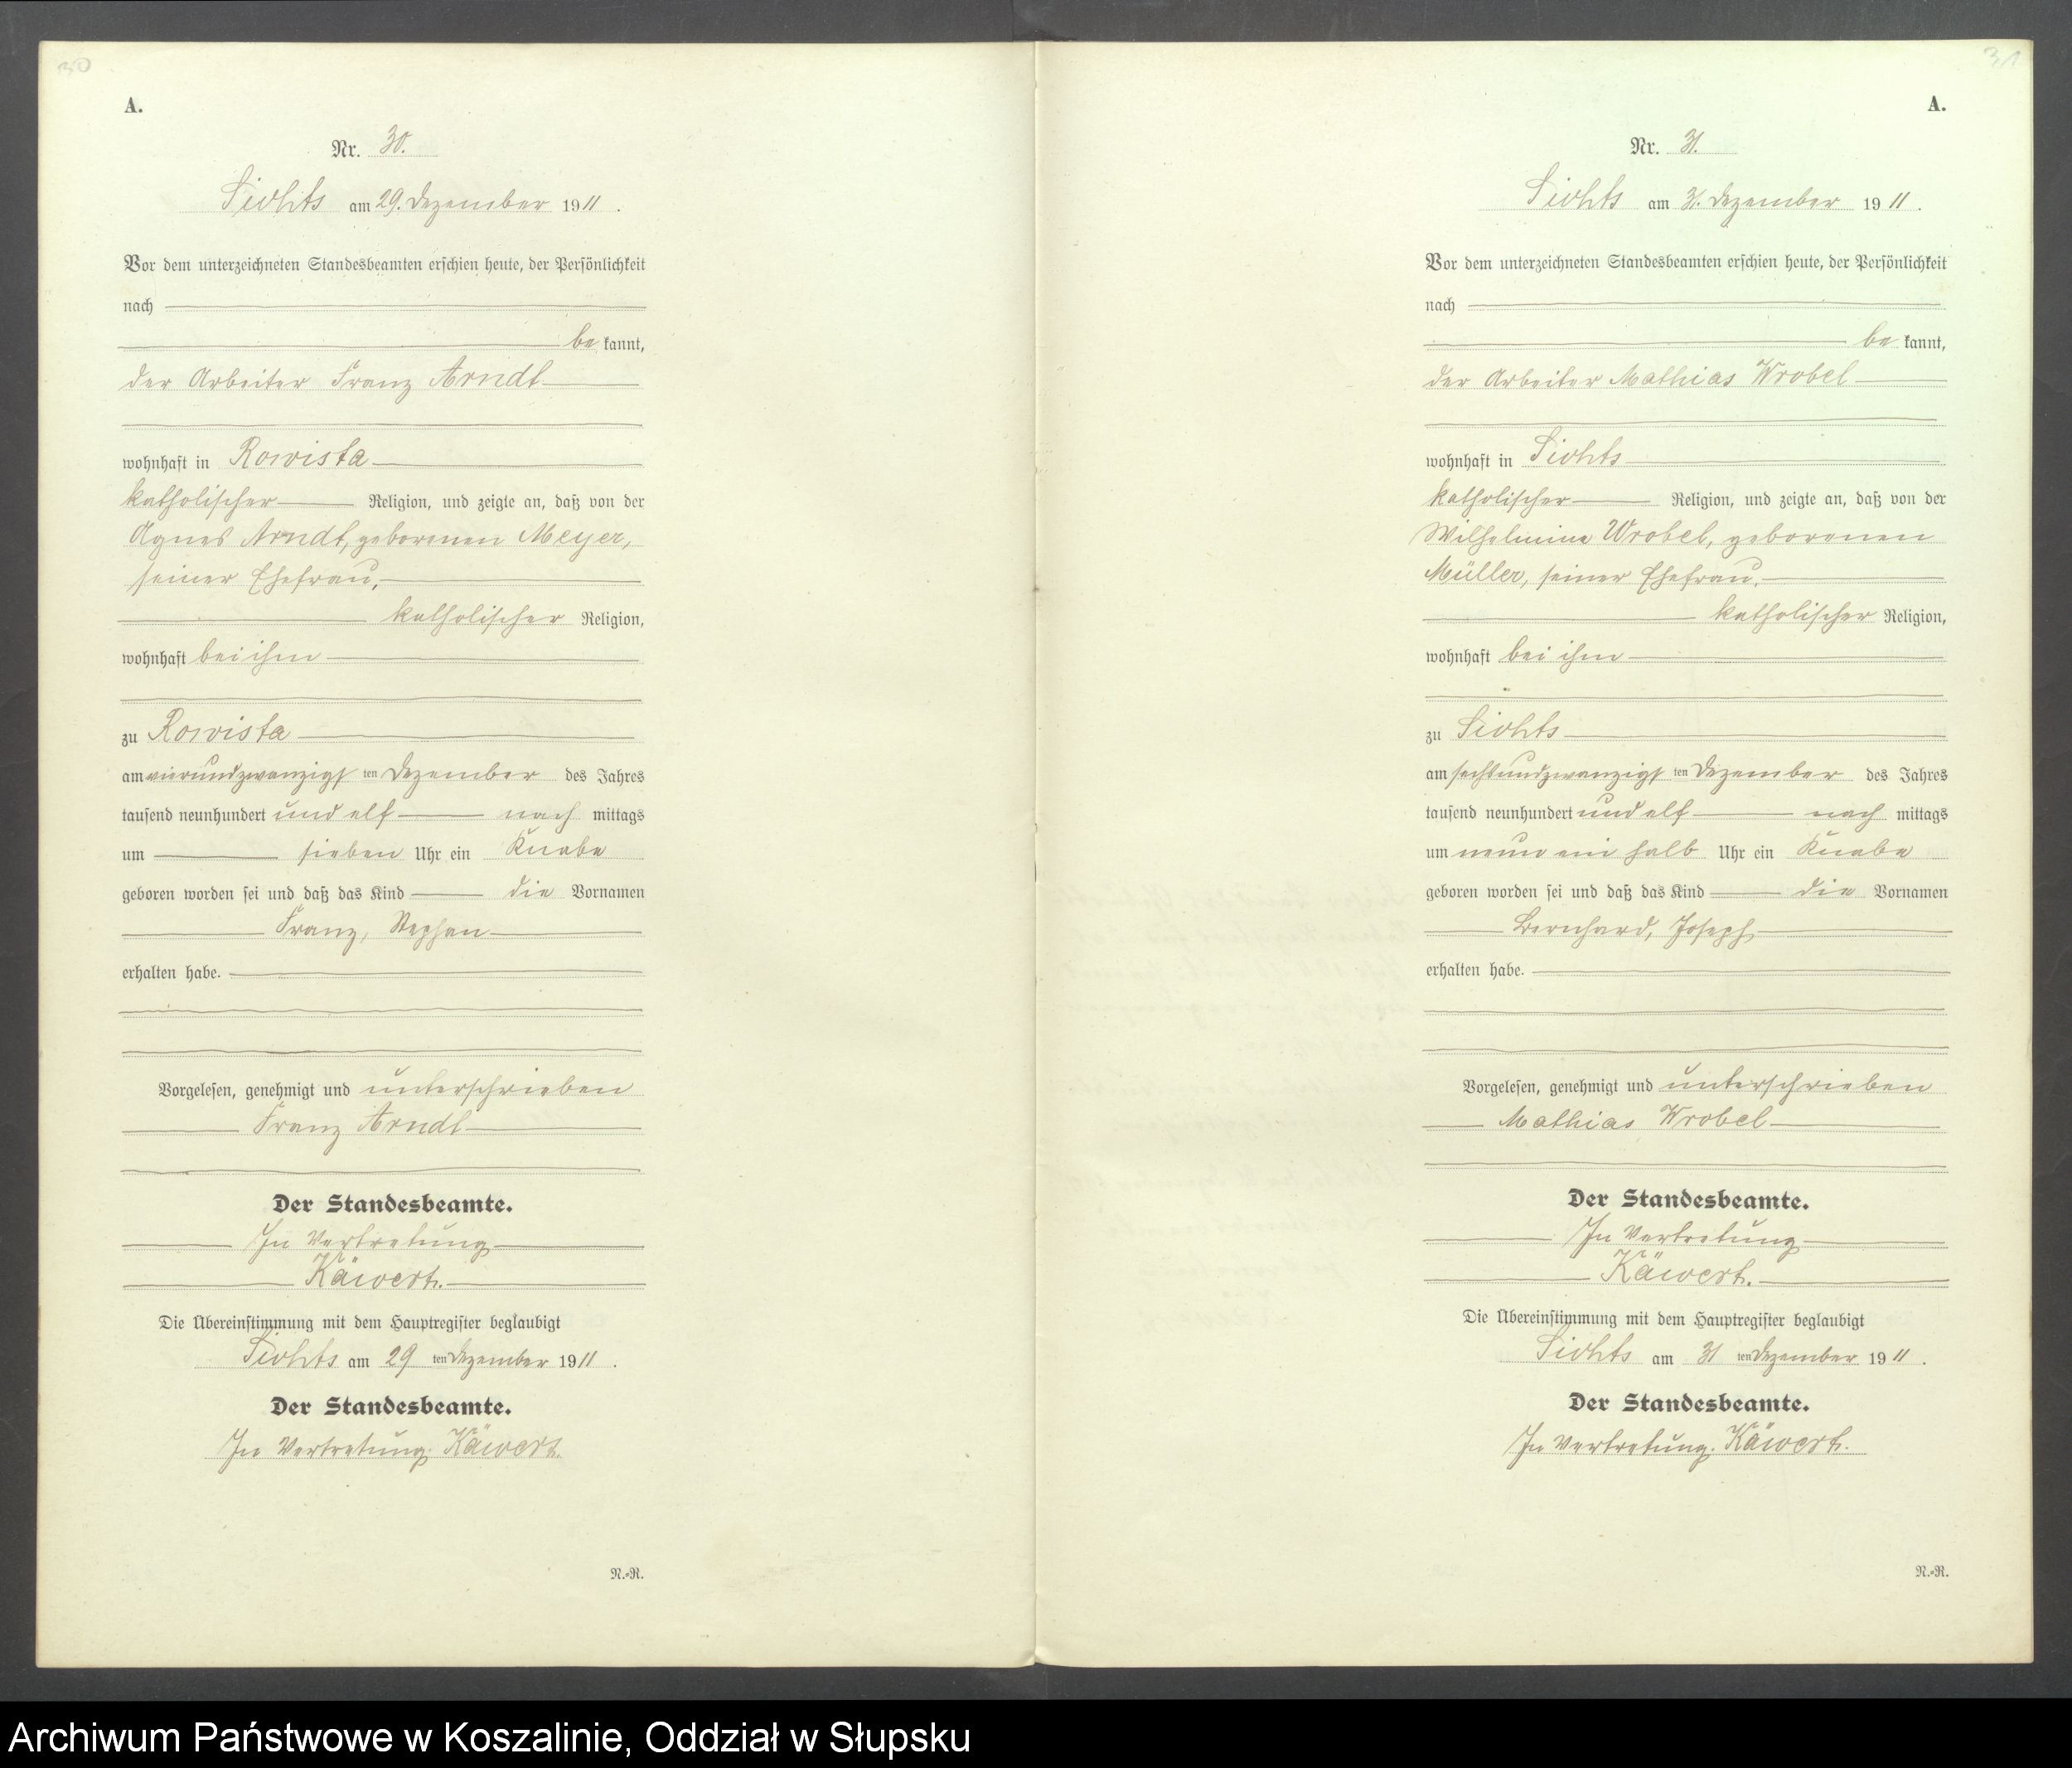 30
A.
Nr. 30.
Liohts am 29. Dezember 1911.
Vor dem unterzeichneten Standesbeamten erschien heute, der Persönlichkeit
nach
be kannt,
der Arbeiter Franz Arndt
wohnhaft in Rowista
katholischer Religion, und zeigte an, daß von der
Agnes Arndt, geborenen Meyer,
seiner Ehefrau,
katholischer Religion,
wohnhaft bei ihm
zu Rowista
am vierundzwanzigsten Dezember des Jahres
tausend neunhundert und elf nach mittags
um sieben Uhr ein Knabe
geboren worden sei und daß das Kind die Vornamen
Franz, Stephan
erhalten habe.
Vorgelesen, genehmigt und unterschrieben
Franz Arndt
Der Standesbeamte.
In Vertretung
Käwert.
Die Übereinstimmung mit dem Hauptregister beglaubigt
Liohts am 29 ten Dezember 1911.
Der Standesbeamte.
In Vertretung: Käwert.
N.-R.
31
A.
Nr. 31.
Liohts am 31. Dezember 1911.
Vor dem unterzeichneten Standesbeamten erschien heute, der Persönlichkeit
nach
be kannt,
der Arbeiter Mathias Wrobel
wohnhaft in Liohts
katholischer Religion, und zeigte an, daß von der
Wilhelmine Wrobel, geborenen
Müller, seiner Ehefrau,
katholischer Religion,
wohnhaft bei ihm
zu Liohts
am sechsundzwanzigsten Dezember des Jahres
tausend neunhundert und elf nach mittags
um neun ein halb Uhr ein Knabe
geboren worden sei und daß das Kind die Vornamen
Bernhard, Joseph
erhalten habe.
Vorgelesen, genehmigt und unterschrieben
Mathias Wrobel
Der Standesbeamte.
In Vertretung
Käwert.
Die Übereinstimmung mit dem Hauptregister beglaubigt
Liohts am 31 ten Dezember 1911.
Der Standesbeamte.
In Vertretung. Käwert.
N.-R.
Archiwum Państwowe w Koszalinie, Oddział w Słupsku